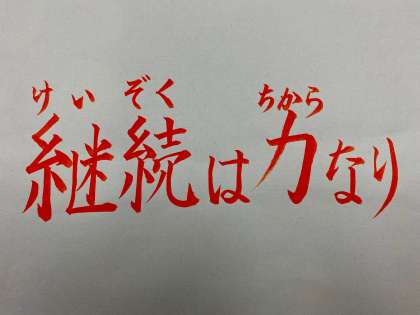 けいぞく ちから
継続は力なり